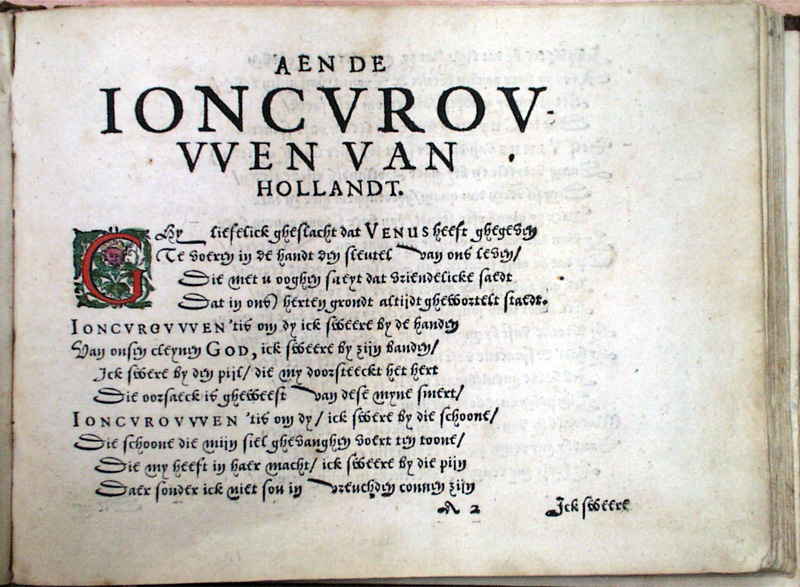 AEN DE
IONCVROV-
VVEN VAN
HOLLANDT.
GHy liefelick gheslacht dat VENUS heeft ghegeven
Te voeren in de handt den sleutel van ons leven/
Die met u ooghen saeyt dat vriendelicke saedt
Dat in ons) herten grondt altijdt ghewortelt staedt.
IONCVROVVVEN 'tis om dy ick sweere by de handen
Van onsen cleynen GOD, ick sweere by zijn banden/
Ick swere by den pijl/ die my doorsteeckt het hert
Die oorsaeck is gheweest van dese myne smert/
IONCVROVVVEN 'tis om dy/ ick swere by die schoone/
Die schoone die mijn siel ghevanghen voert ten toone/
Die my heeft in haer macht/ ick sweere by die pijn
Daer sonder ick niet sou in vreuchden connen zijn
A 2 Ick sweere